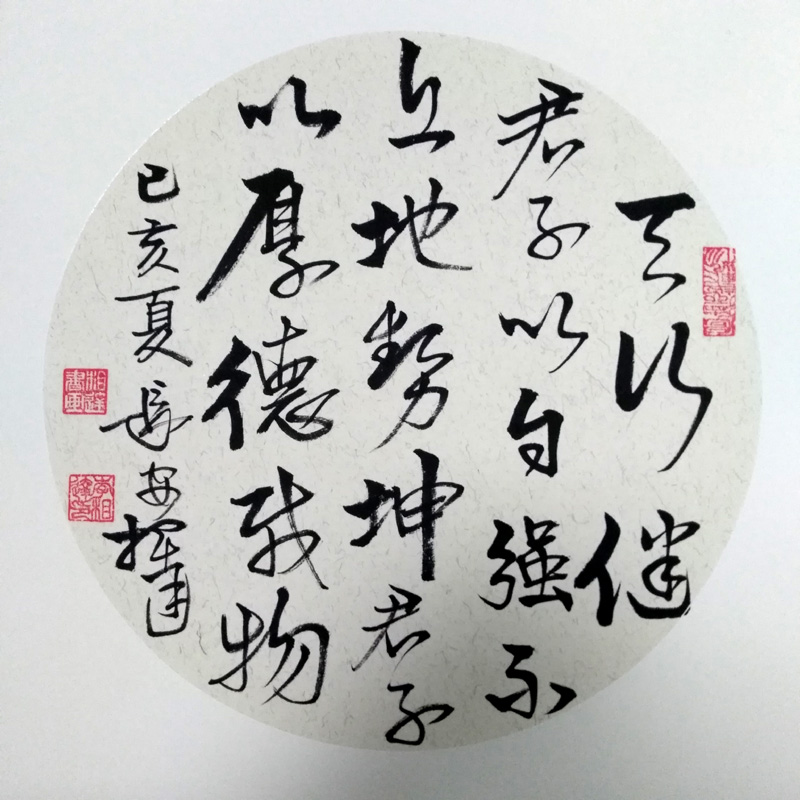 天行健
君子以自强不
息地势坤君子
以厚德载物
己亥夏長安